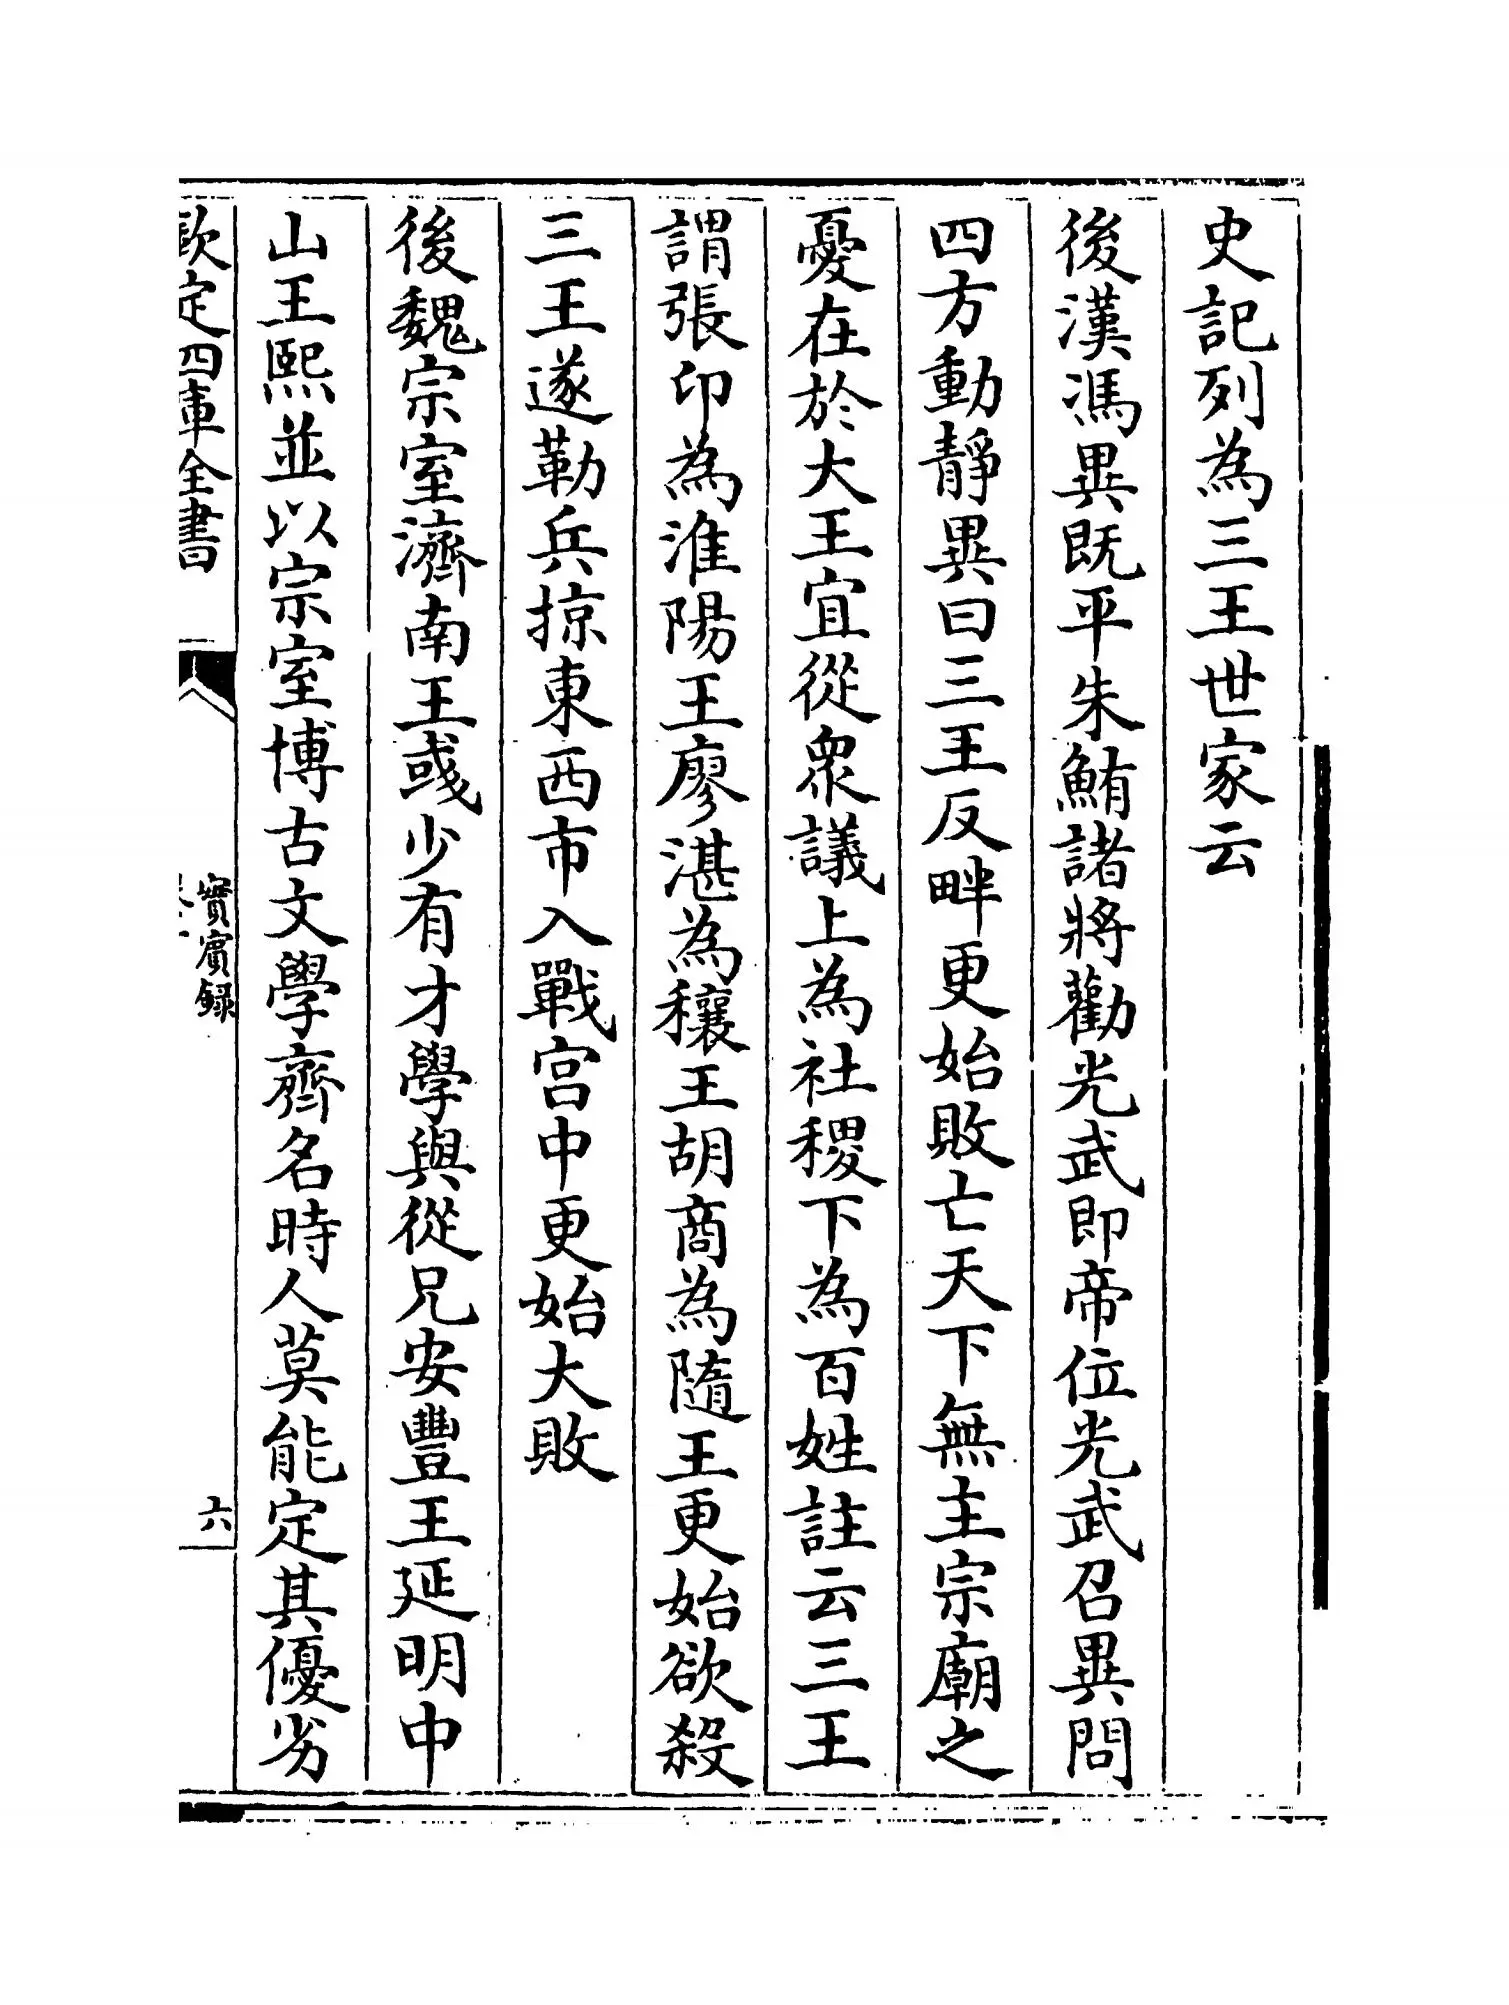 史記列為三王世家云
後漢馮異既平朱鮪諸將勸光武即帝位光武召異問
四方動靜異曰三王反畔更始敗亡天下無主宗廟之
憂在於大王宜從衆議上為社稷下為百姓註云三王
謂張卬為淮陽王廖湛為穰王胡商為隨王更始欲殺
三王遂勒兵掠東西市入戰宫中更始大敗
後魏宗室濟南王彧少有才學與從兄安豐王延明中
山王熙並以宗室博古文學齊名時人莫能定其優劣
欽定四庫全書
實賓録
六